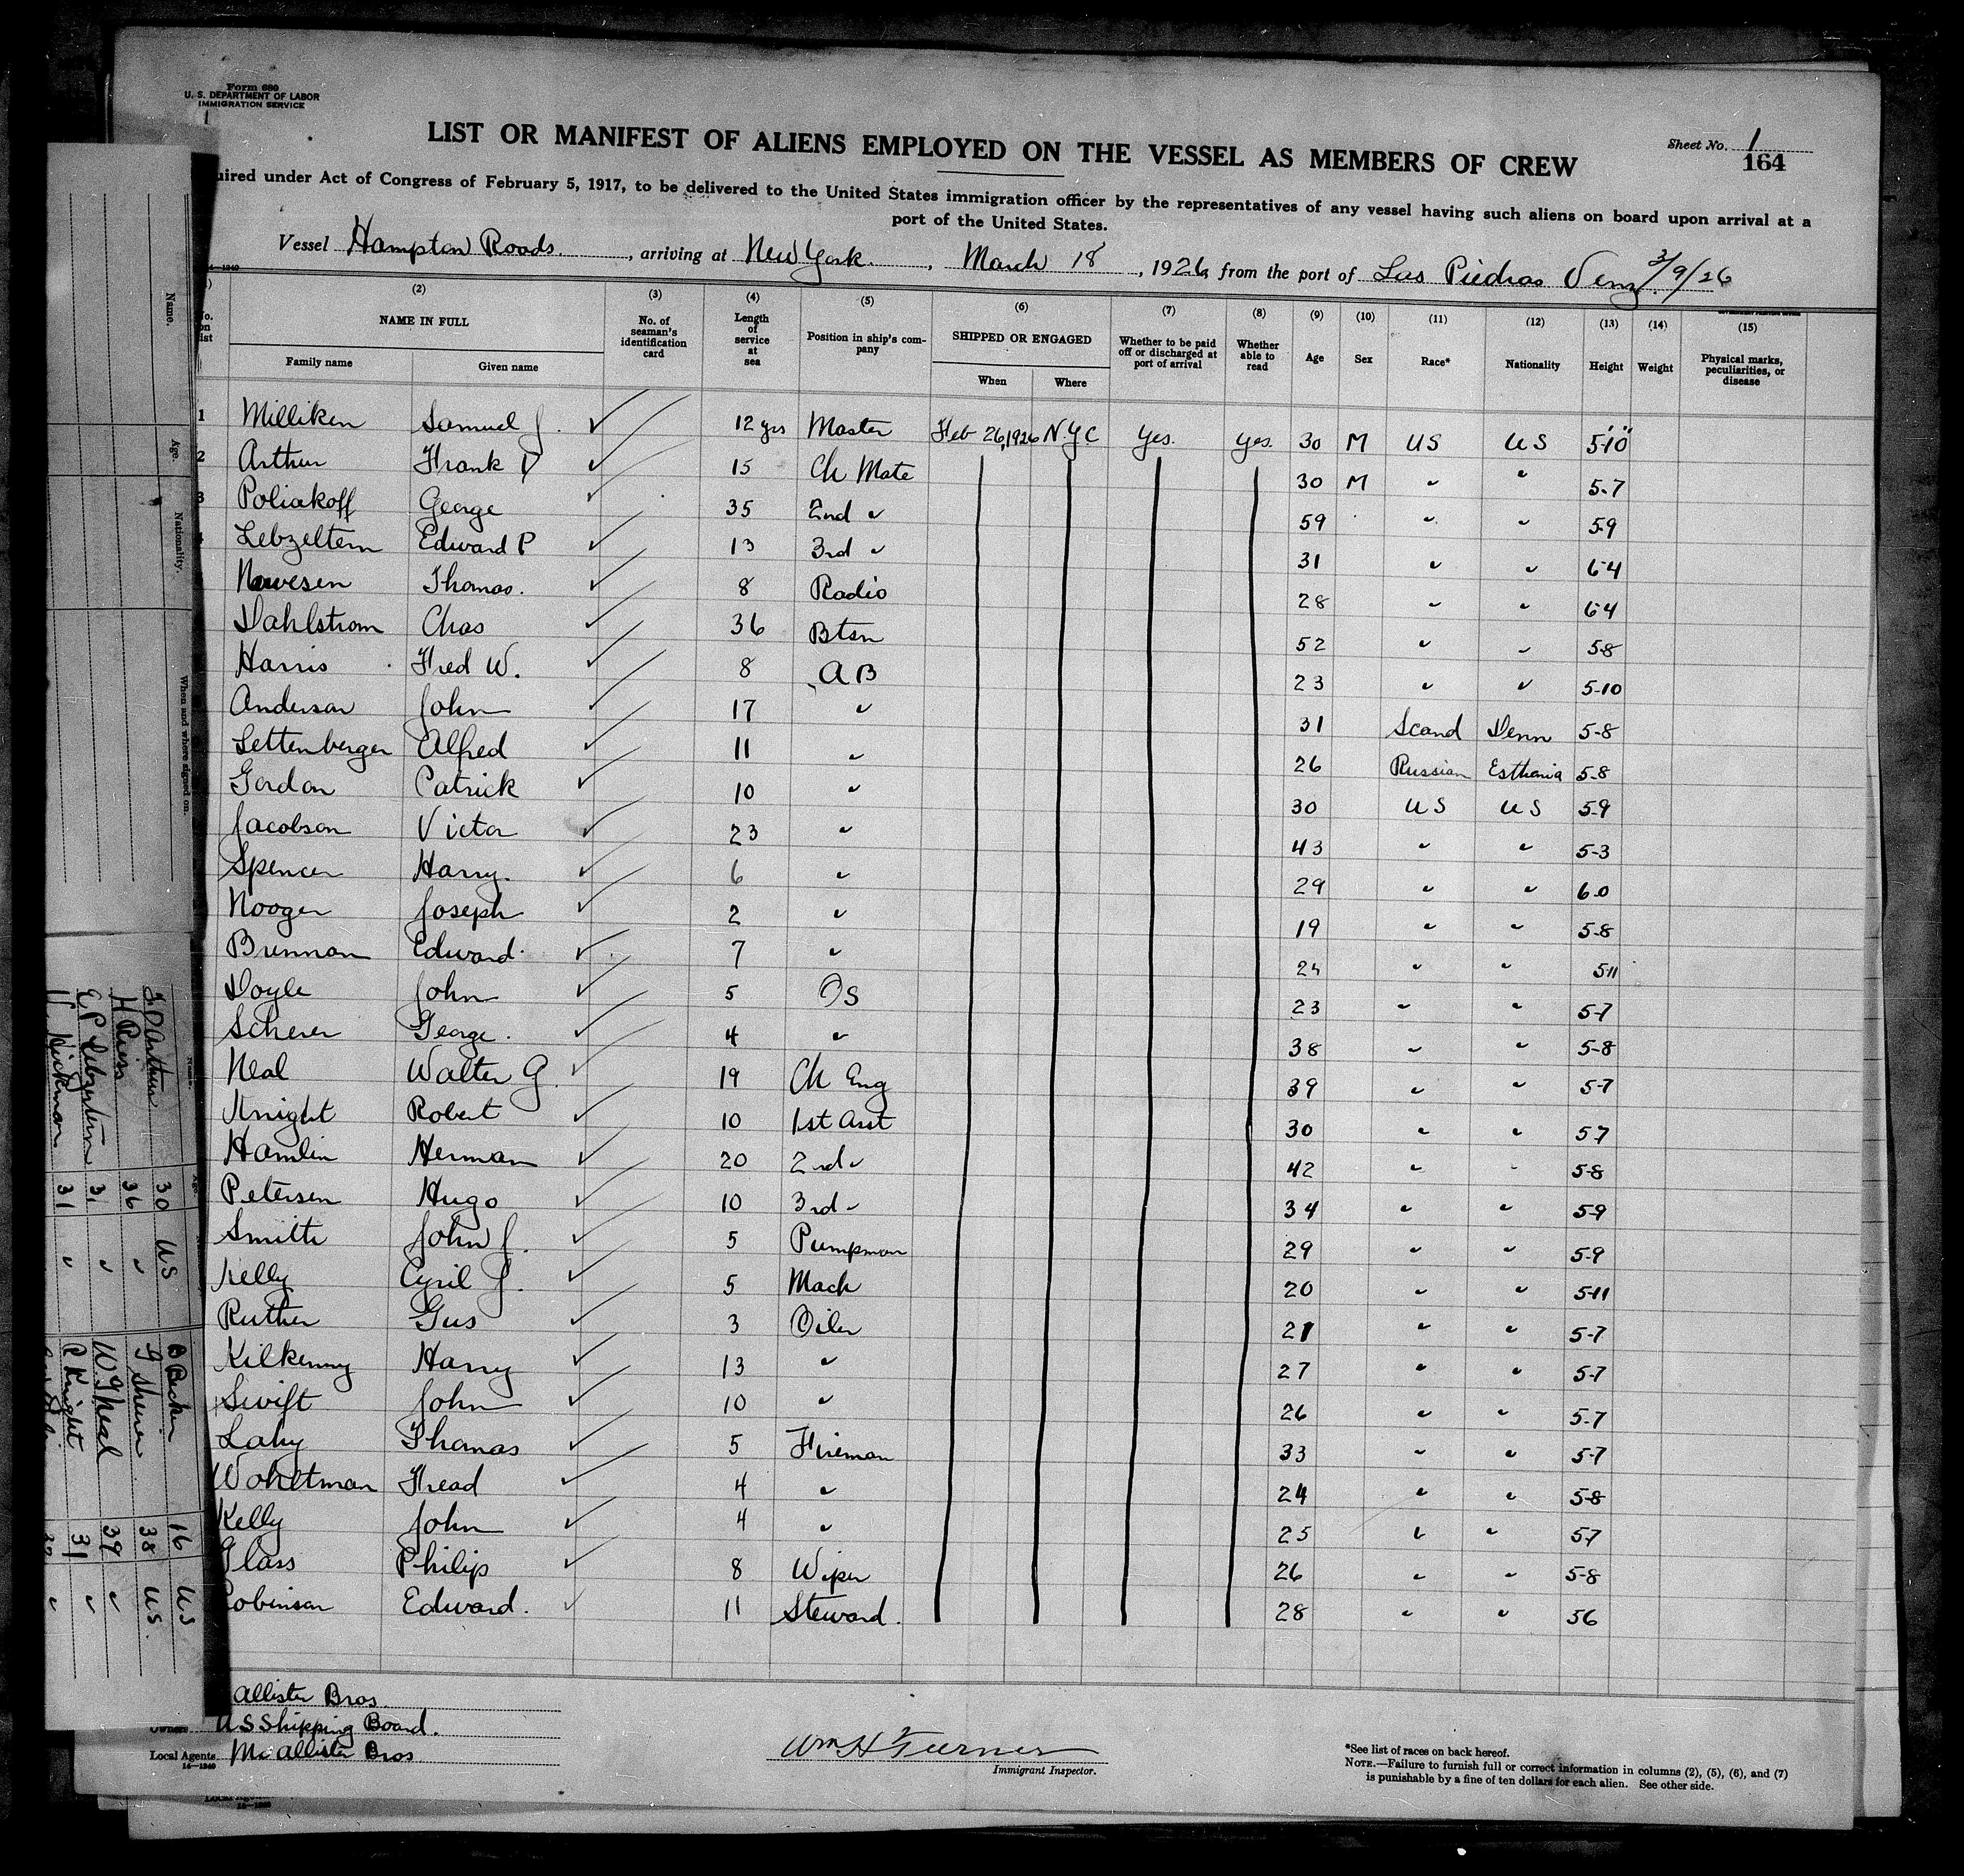 Form 680
U. S. DEPARTMENT OF LABOR
IMMIGRATION SERVICE
Sheet No. 1
164
LIST OR MANIFEST OF ALIENS EMPLOYED ON THE VESSEL AS MEMBERS OF CREW
uired under Act of Congress of February 5, 1917, to be delivered to the United States immigration officer by the representatives of any vessel having such aliens on board upon arrival at a
port of the United States.
Vessel Hampton Roads, arriving at New York, March 18, 1926, from the port of Las Piedras Venz 3/9/26
(2) (3) (4) (5) (6) (7) (8) (9) (10) (11) (12) (13) (14) (15)
No. on list NAME IN FULL Family name Given name No. of seaman's identification card Length of service at sea Position in ship's company SHIPPED OR ENGAGED When Where Whether to be paid off or discharged at port of arrival Whether able to read Age Sex Race* Nationality Height Weight Physical marks, peculiarities, or disease
1 Milliken Samuel J. ✓ 12 yrs Master Feb 26, 1926 N.Y.C Yes. Yes. 30 M US US 5'10"
2 Arthur Frank D ✓ 15 Ch Mate 30 M " " 5-7
3 Poliakoff George ✓ 35 2nd " 59 " " 59
Lebzeltern Edward P ✓ 13 3rd " 31 " " 6-4
Thomas. ✓ 8 Radio 28 " " 6-4
Dahlstrom Chas ✓ 36 Btsn 52 " " 5-8
Harris Fred W. ✓ 8 AB 23 " " 5-10
Anderson John ✓ 17 " 31 Scand Denn 5-8
Lettenberger Alfred ✓ 11 " 26 Russian Esthonia 5-8
Gordon Patrick ✓ 10 " 30 US US 5-9
Jacobson Victor ✓ 23 " 43 " " 5-3
Spencer Harry. ✓ 6 " 29 " " 6-0
Nooger Joseph ✓ 2 " 19 " " 5-8
Brennan Edward. ✓ 7 " 24 " " 5-11
Doyle John ✓ 5 OS 23 " " 5-7
Scherer George. ✓ 4 " 38 " " 5-8
Neal Walter G. ✓ 19 Ch Eng 39 " " 5-7
Knight Robert ✓ 10 1st Asst 30 " " 5-7
Hamlin Herman ✓ 20 2nd " 42 " " 5-8
Petersen Hugo ✓ 10 3rd " 34 " " 5-9
Smith John J. ✓ 5 Pumpman 29 " " 5-9
Kelly Cyril J. ✓ 5 Mach 20 " " 5-11
Ruther Gus ✓ 3 Oiler 21 " " 5-7
Kilkenny Harry ✓ 13 " 27 " " 5-7
Swift John ✓ 10 " 26 " " 5-7
Lahy Thomas ✓ 5 Fireman 33 " " 5-7
Wohltman Fread ✓ 4 " 24 " " 5-8
Kelly John ✓ 4 " 25 " " 57
Glass Philip ✓ 8 Wiper 26 " " 5-8
Robinson Edward. ✓ 11 Steward. 28 " " 56
allister Bros.
Owners U S Shipping Board.
Local Agents McAllister Bros
14—1240
Wm H Turner
Immigrant Inspector.
*See list of races on back hereof.
NOTE.—Failure to furnish full or correct information in columns (2), (5), (6), and (7)
is punishable by a fine of ten dollars for each alien. See other side.
Name. Age. Nationality. When and where signed on.
F D Arthur 30 US
H Riess 36 "
E P Lebzeltern 31 "
Hickman 31 "
B Becker 16 US
G Sherer 38 US.
W G Neal 39 "
R Knight 31 "